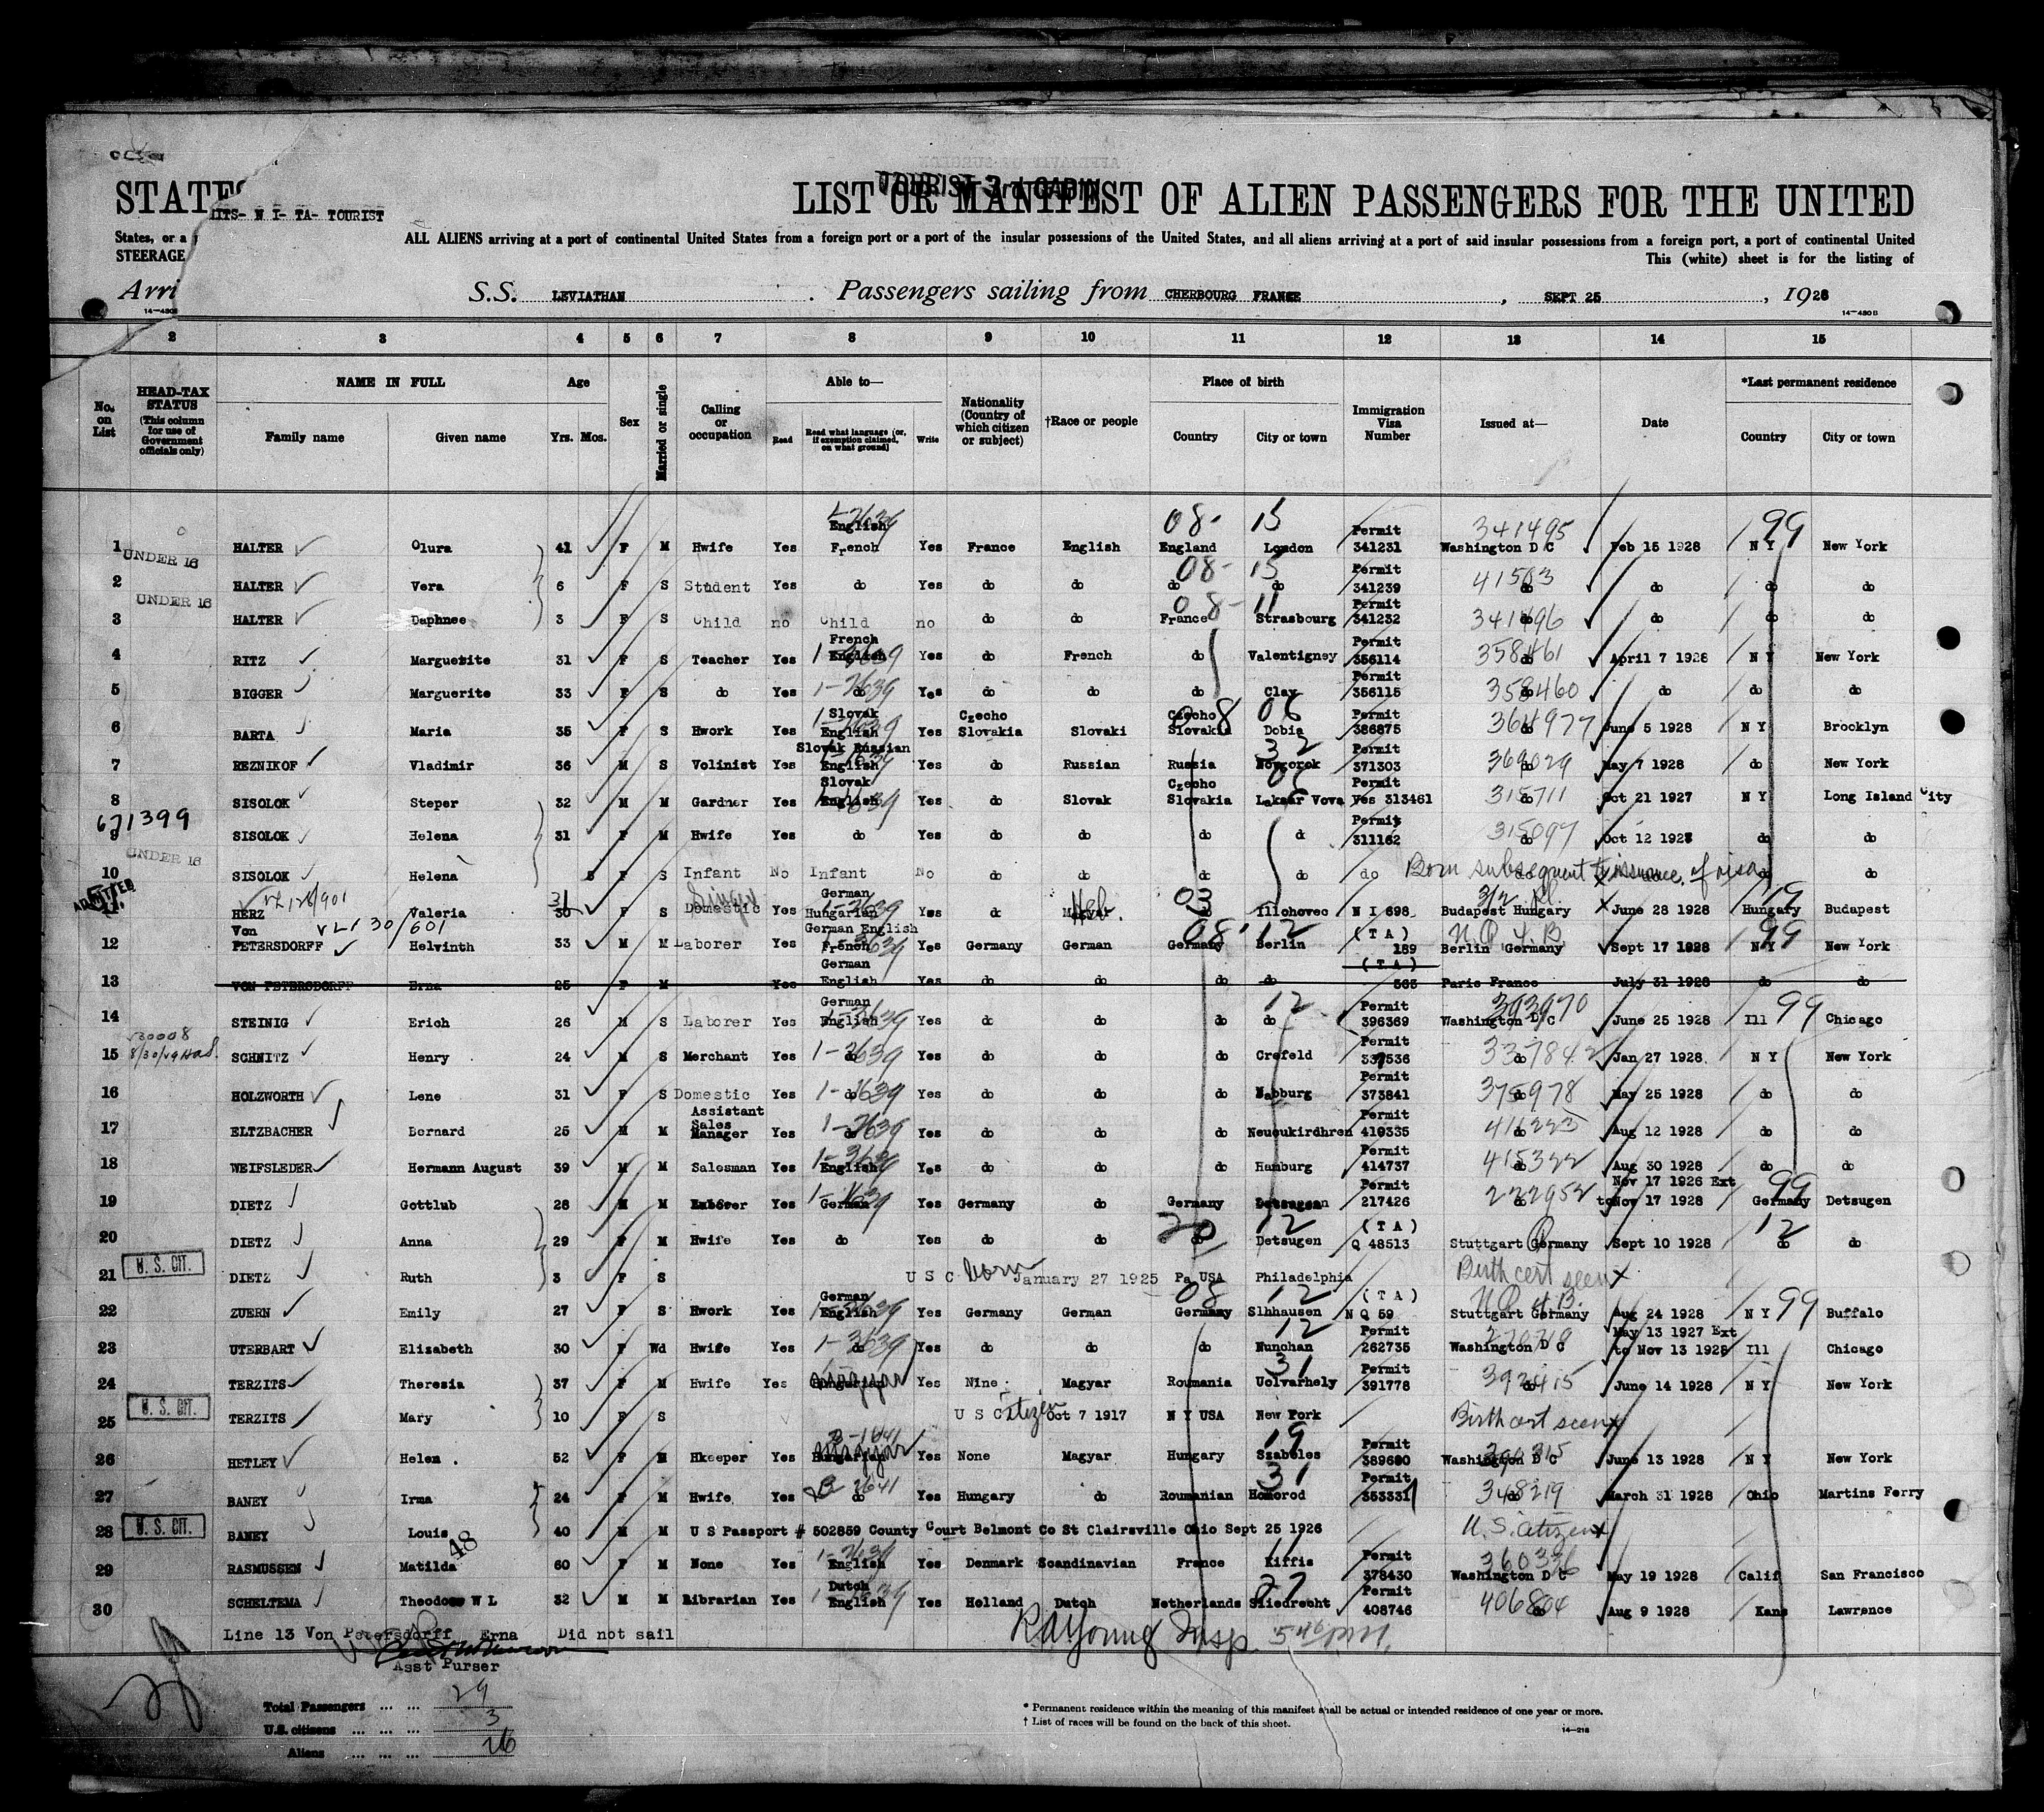 LIST OR MANIFEST OF ALIEN PASSENGERS FOR THE UNITED
TOURIST 3rd CABIN
STATES
ITS- N I- TA- TOURIST
ALL ALIENS arriving at a port of continental United States from a foreign port or a port of the insular possessions of the United States, and all aliens arriving at a port of said insular possessions from a foreign port, a port of continental United
States, or a
STEERAGE
This (white) sheet is for the listing of
Arri
S.S. LEVIATHAN . Passengers sailing from CHERBOURG FRANCE , SEPT 25 , 1928
2 3 4 5 6 7 8 9 10 11 12 13 14 15
No. on List
HEAD-TAX STATUS (This column for use of Government officials only)
NAME IN FULL Family name Given name
Age Yrs. Mos.
Sex
Married or single
Calling or occupation
Able to— Read Read what language (or, if exemption claimed, on what ground) Write
Nationality (Country of which citizen or subject)
†Race or people
Place of birth Country City or town
Immigration Visa Number
Issued at—
Date
*Last permanent residence Country City or town
1 HALTER Olura 41 F M Hwife Yes English French Yes France English England London Permit 341231 341495 Washington D C Feb 15 1928 N Y 99 New York
UNDER 16
2 HALTER Vera 6 F S Student Yes do Yes do do do do Permit 341239 do do do do
UNDER 16
3 HALTER Daphnee 3 F S Child no Child no do do France Strasbourg Permit 341232 341496 do do do do
4 RITZ Marguerite 31 F S Teacher Yes French English Yes do French do Valentigney Permit 356114 358461 do April 7 1928 N Y New York
5 BIGGER Marguerite 33 F S do Yes do Yes do do do Clay Permit 356115 358460 do do do do
6 BARTA Maria 35 F S Hwork Yes Slovak English Yes Czecho Slovakia Slovaki Czecho Slovakia Dobia Permit 386875 364977 June 5 1928 N Y Brooklyn
7 REZNIKOF Vladimir 36 M S Volinist Yes Slovak Russian English Yes do Russian Russia Novgorok Permit 371303 369029 May 7 1928 do New York
8 SISOLOK Steper 32 M M Gardner Yes Slovak English Yes do Slovak Czecho Slovakia Laksar Vova Permit Yes 313461 315711 Oct 21 1927 N Y Long Island City
671399
9 SISOLOK Helena 31 F M Hwife Yes do Yes do do do d Permit 311162 315097 Oct 12 1928 do do
UNDER 16
10 SISOLOK Helena F S Infant No Infant No do do do do do Born subsequent to issuance of visa do do
ADMITTED
11 HERZ Valeria 31 30 F S Domestic Yes German Hungarian Yes do Magyar Heb. do Illohovec N I 698 Budapest Hungary June 28 1928 Hungary Budapest
12 Von PETERSDORFF Helvinth 33 M M Laborer Yes German English French Yes Germany German Germany Berlin (TA) 189 Berlin Germany Sept 17 1928 N Y 99 New York
13 VON PETERSDORFF Erna 25 F M Yes German English Yes do do do do (TA) 563 Paris France July 31 1928 do do
14 STEINIG Erich 26 M S Laborer Yes German English Yes do do do do Permit 396369 393970 Washington D C June 25 1928 Ill 99 Chicago
15 SCHNITZ Henry 24 M S Merchant Yes do Yes do do do Crefeld Permit 337536 337842 do Jan 27 1928 N Y New York
16 HOLZWORTH Lene 31 F S Domestic Yes do Yes do do do Nabburg Permit 373841 375978 do May 25 1928 do do
17 ELTZBACHER Bernard 25 M M Assistant Sales Manager Yes do Yes do do do Neueukirdhren Permit 410335 416223 do Aug 12 1928 do do
18 WEIFSLEDER Hermann August 39 M M Salesman Yes English Yes do do do Hamburg Permit 414737 415322 do Aug 30 1928 do do
19 DIETZ Gottlub 28 M M Laborer Yes German Yes Germany do Germany Detsugen Permit 217426 222952 do Nov 17 1926 Ext to Nov 17 1928 Germany 99 Detsugen
20 DIETZ Anna 29 F M Hwife Yes do Yes do do do Detsugen (TA) Q 48513 Stuttgart Germany Sept 10 1928 do do
U. S. CIT.
21 DIETZ Ruth 3 F S U S C born January 27 1925 Pa USA Philadelphia Birth cert seen
22 ZUERN Emily 27 F S Hwork Yes German English Yes Germany German Germany Slhhausen (TA) N Q 59 Stuttgart Germany Aug 24 1928 N Y 99 Buffalo
23 UTERBART Elizabeth 30 F Wd Hwife Yes do Yes do do do Nunchan Permit 262735 Washington D C May 13 1927 Ext to Nov 13 1928 Ill Chicago
24 TERZITS Theresia 37 F M Hwife Yes Hungarian Magyar Yes Nine Magyar Roumania Uolvarhely Permit 391778 392415 do June 14 1928 N Y New York
U. S. CIT.
25 TERZITS Mary 10 F S U S Citizen Oct 7 1917 N Y USA New York Birth cert seen
26 HETLEY Helen 52 F M Hkeeper Yes Hungarian Magyar Yes None Magyar Hungary Szabeles Permit 389690 390315 Washington D C June 13 1928 N Y New York
27 BANEY Irma 24 F M Hwife Yes do Yes Hungary do Roumanian Homorod Permit 353331 348219 do March 31 1928 Ohio Martins Ferry
U. S. CIT.
28 BANEY Louis 40 M M U S Passport # 502859 County Court Belmont Co St Clairsville Ohio Sept 25 1926 U. S. Citizen
48
29 RASMUSSEN Matilda 60 F M None Yes English Yes Denmark Scandinavian France Kiffis Permit 378430 360336 Washington D C May 19 1928 Calif San Francisco
30 SCHELTEMA Theodore W L 32 M M Ribrarian Yes Dutch English Yes Holland Dutch Netherlands Sliedrecht Permit 408746 406804 do Aug 9 1928 Kans Lawrence
Line 13 Von Petersdorff Erna Did not sail
R A Young Insp.
Asst Purser
Total Passengers ... ... 29
U.S. citizens ... ... ... 3
Aliens ... ... ... 26
* Permanent residence within the meaning of this manifest shall be actual or intended residence of one year or more.
† List of races will be found on the back of this sheet.
14—218